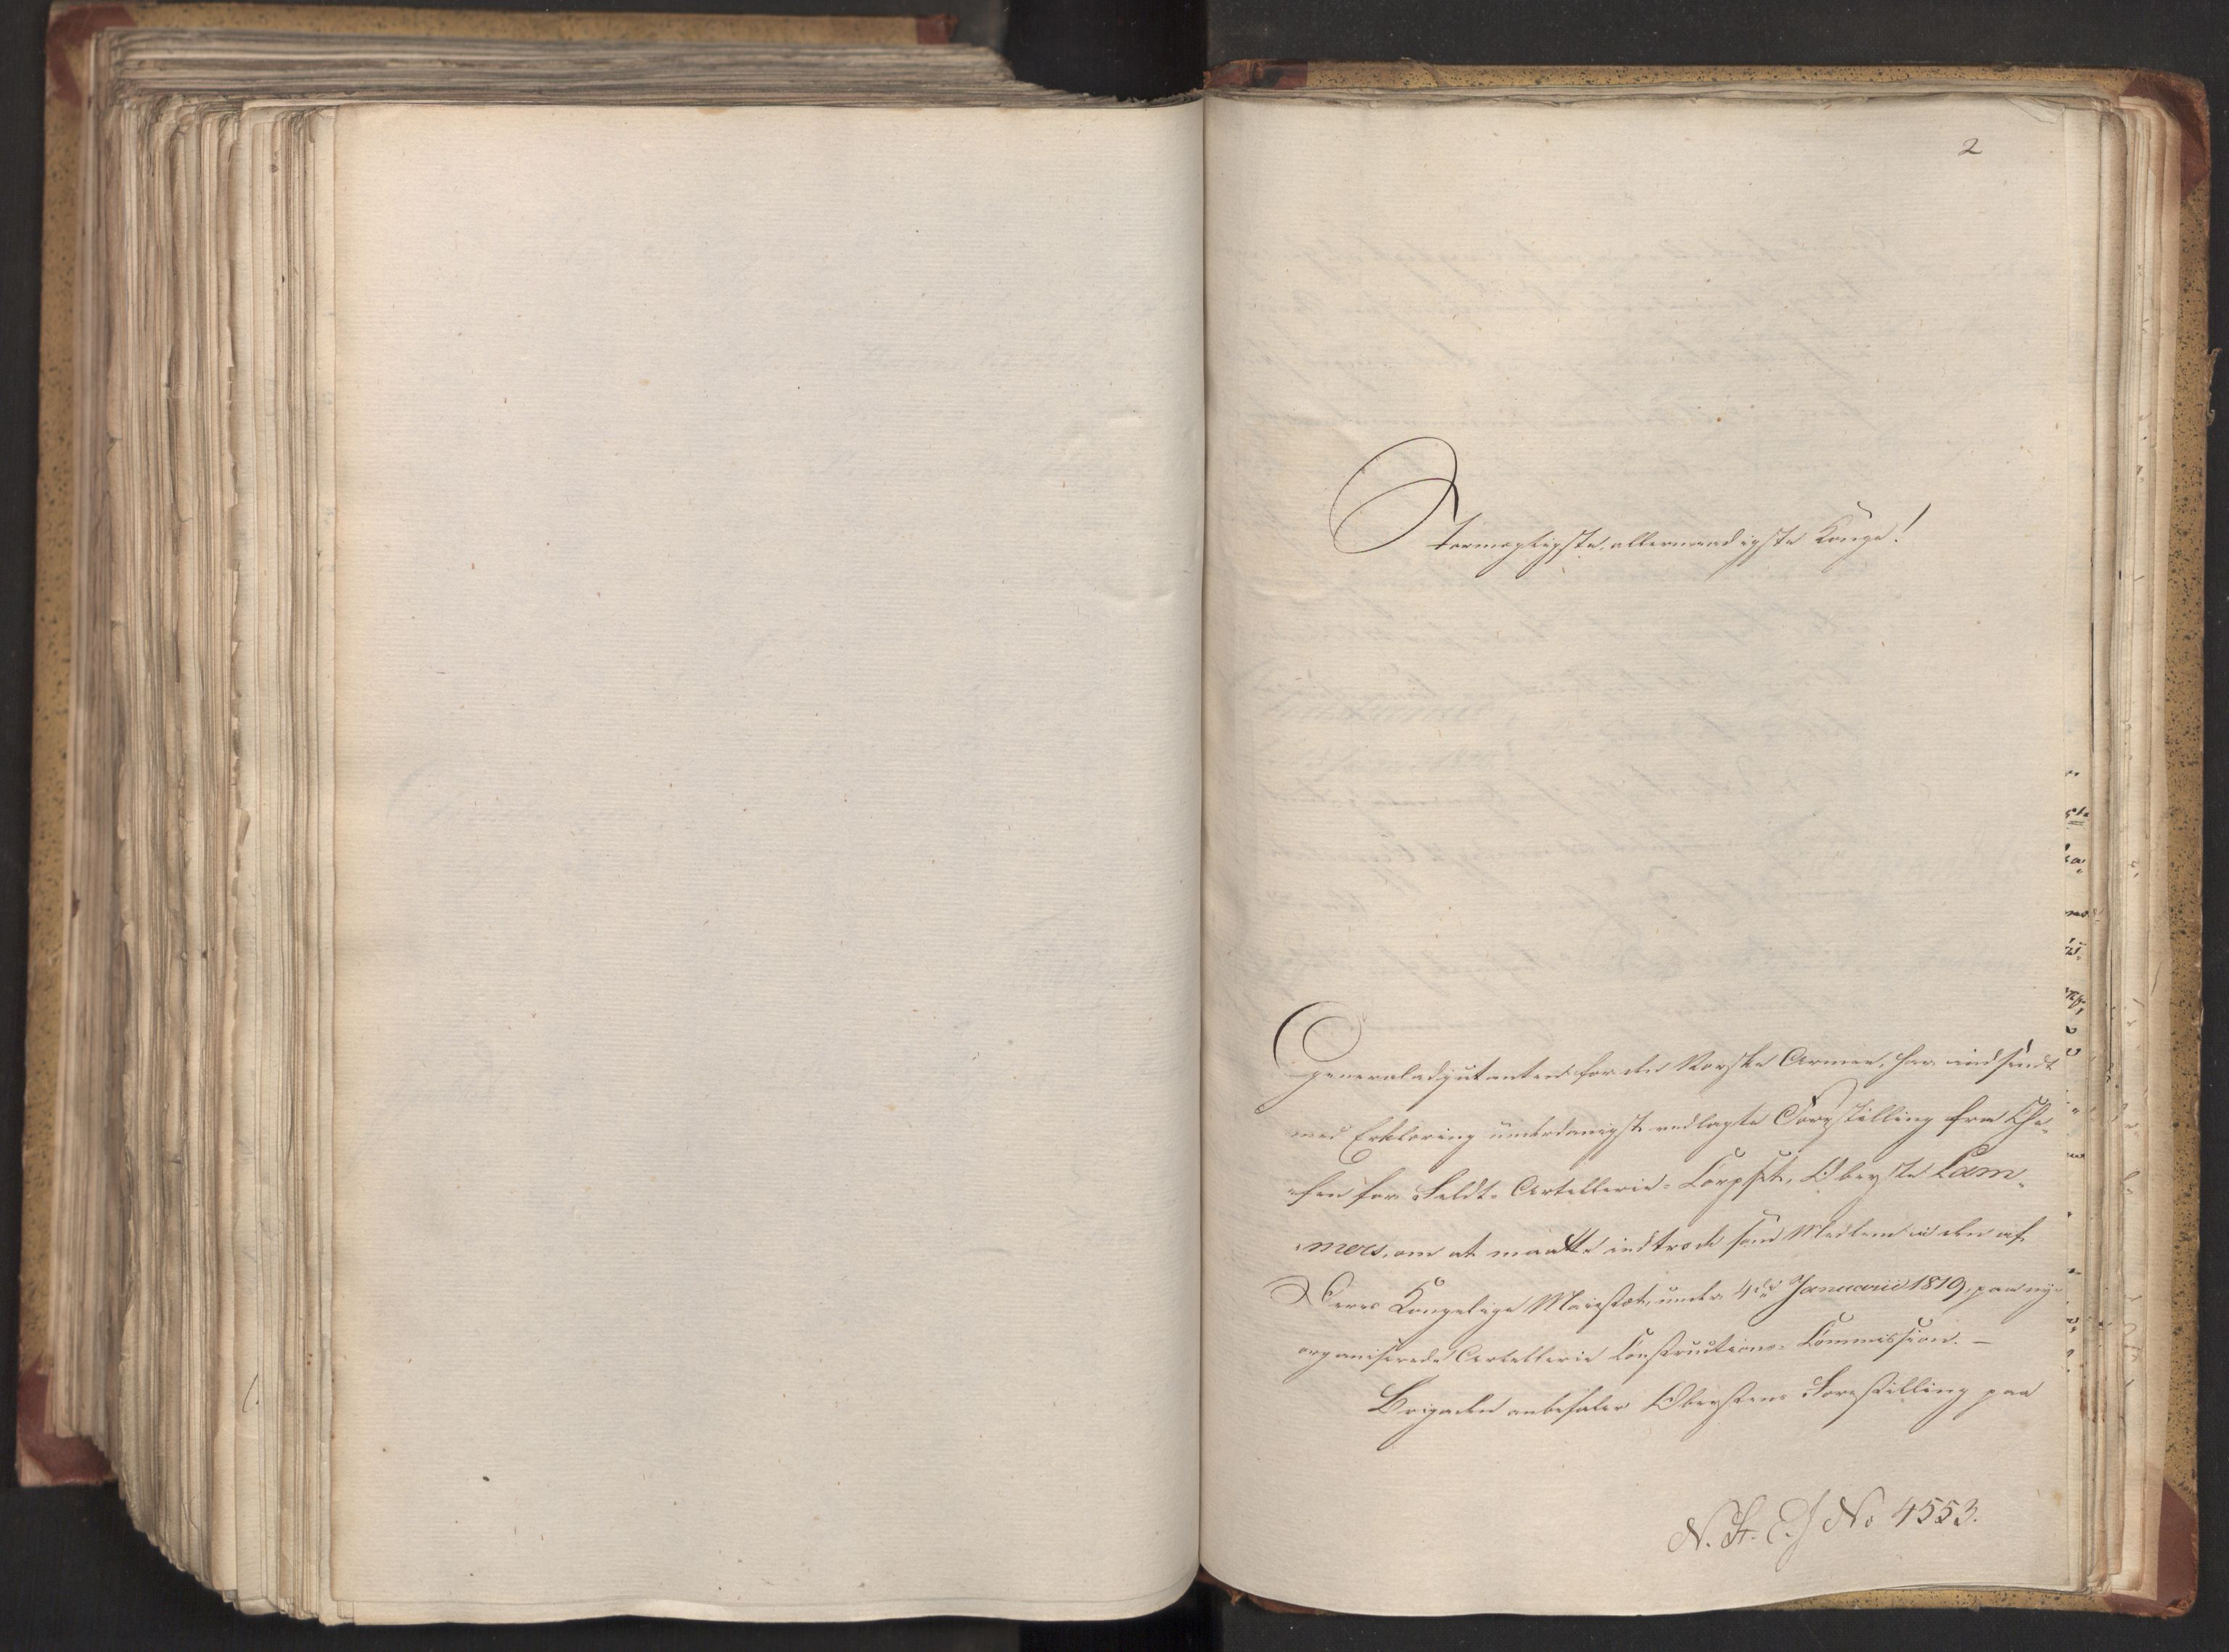 2
Stormægtigste, allernaadigste Konge!
Generaladjutanten for den Norske Armee, har indsendt
med Erklæring underdanigst vedlagte Forestilling fra Che-
-fen for Feldt-Artillerie-Corpset, Oberste Lam-
-mers, om at maatte indtræde som Medlem i den af
Deres Kongelige Maiestæt, under 4de Januarii 1819, paa nye
organiserede Artillerie Constructions-Commission. —
Brigaden anbefaler Oberstens Forestilling paa
N. St. E. J No 4553.